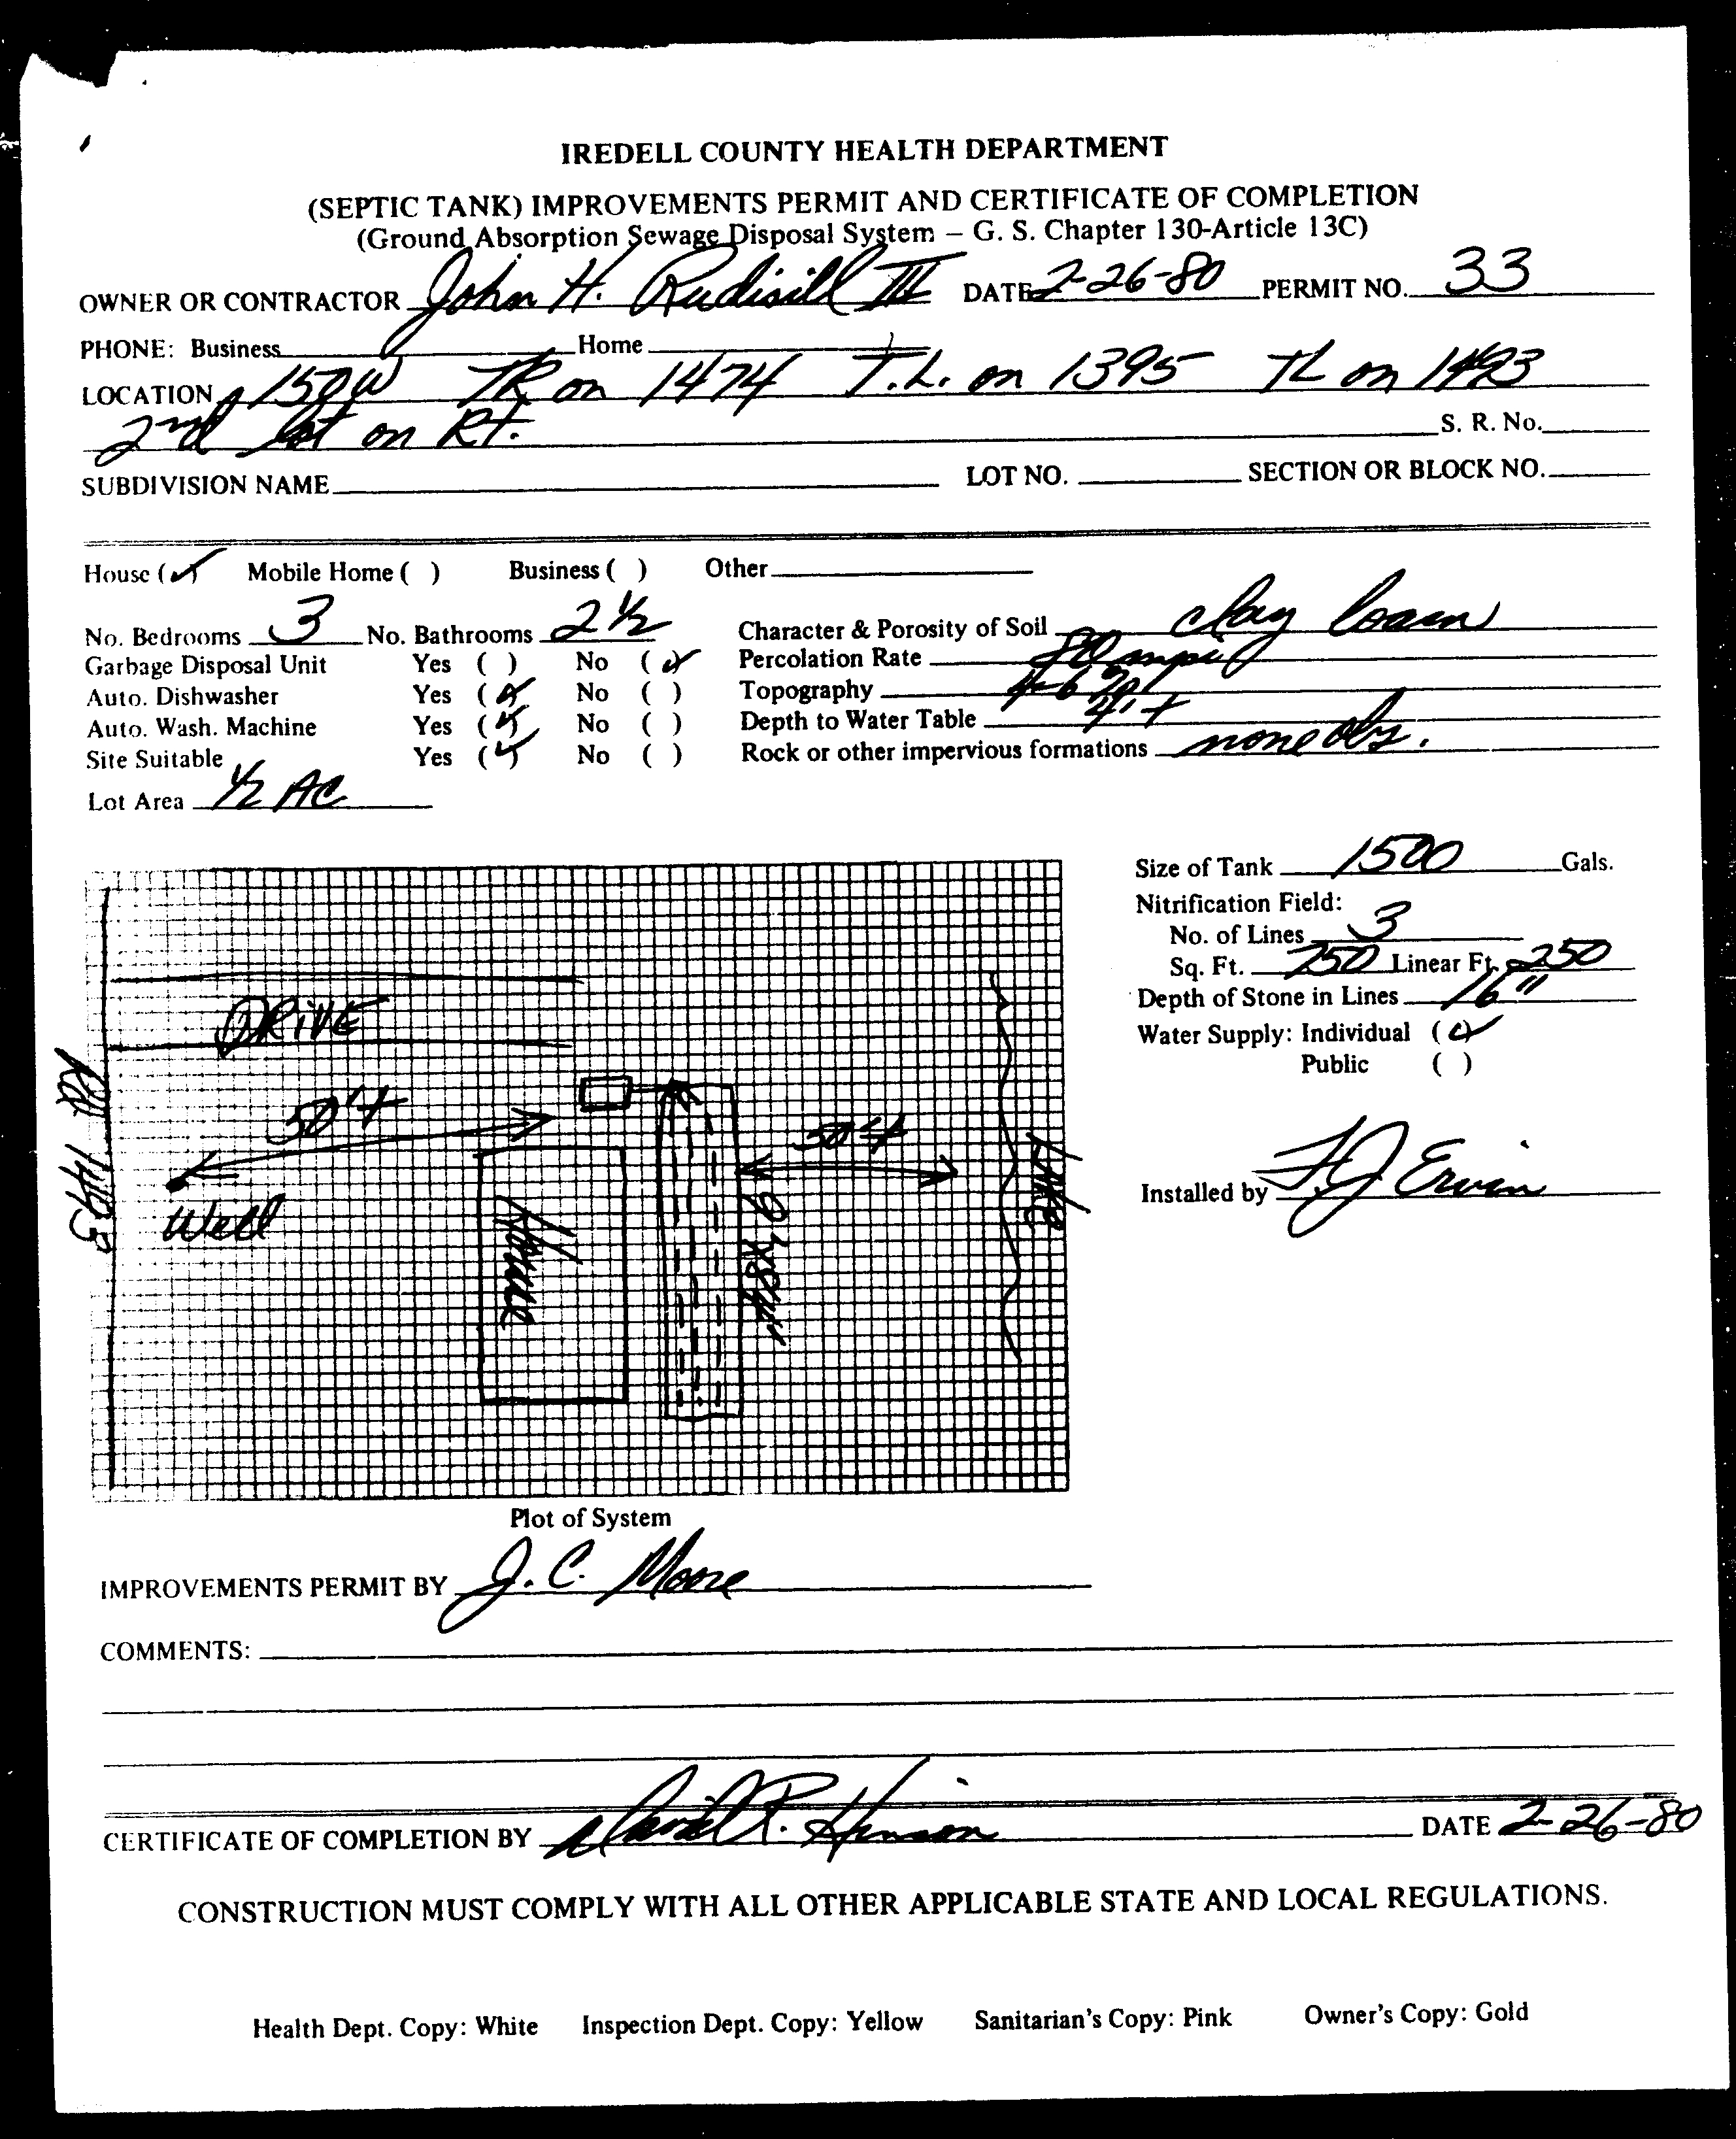 IREDELL COUNTY HEALTH DEPARTMENT
(SEPTIC TANK) IMPROVEMENTS PERMIT AND CERTIFICATE OF COMPLETION
(Ground Absorption Sewage Disposal System – G. S. Chapter 130-Article 13C)
OWNER OR CONTRACTOR John H. Rudisill III DATE 2-26-80 PERMIT NO. 33
PHONE: Business Home
LOCATION 150W TR on 1474 T.L. on 1395 TL on 1493
2nd lot on Rt. S. R. No.
SUBDIVISION NAME LOT NO. SECTION OR BLOCK NO.
House (✓) Mobile Home ( ) Business ( ) Other
No. Bedrooms 3 No. Bathrooms 2 1/2 Character & Porosity of Soil clay loam
Garbage Disposal Unit Yes ( ) No (✓) Percolation Rate 80 mpi
Auto. Dishwasher Yes (✓) No ( ) Topography 4-6%
Auto. Wash. Machine Yes (✓) No ( ) Depth to Water Table 4'+
Site Suitable Yes (✓) No ( ) Rock or other impervious formations none obs.
Lot Area 1/2 AC
Size of Tank 1500 Gals.
Nitrification Field:
No. of Lines 3
Sq. Ft. 750 Linear Ft. 250
Depth of Stone in Lines 16"
Water Supply: Individual (✓)
Public ( )
Installed by F J Ervin
DRIVE
Rd 1493
50'+
50'+
Well
House
9'x84'
Lake
Plot of System
IMPROVEMENTS PERMIT BY J. C. Moore
COMMENTS:
CERTIFICATE OF COMPLETION BY David R. Hinson DATE 2-26-80
CONSTRUCTION MUST COMPLY WITH ALL OTHER APPLICABLE STATE AND LOCAL REGULATIONS.
Health Dept. Copy: White Inspection Dept. Copy: Yellow Sanitarian's Copy: Pink Owner's Copy: Gold